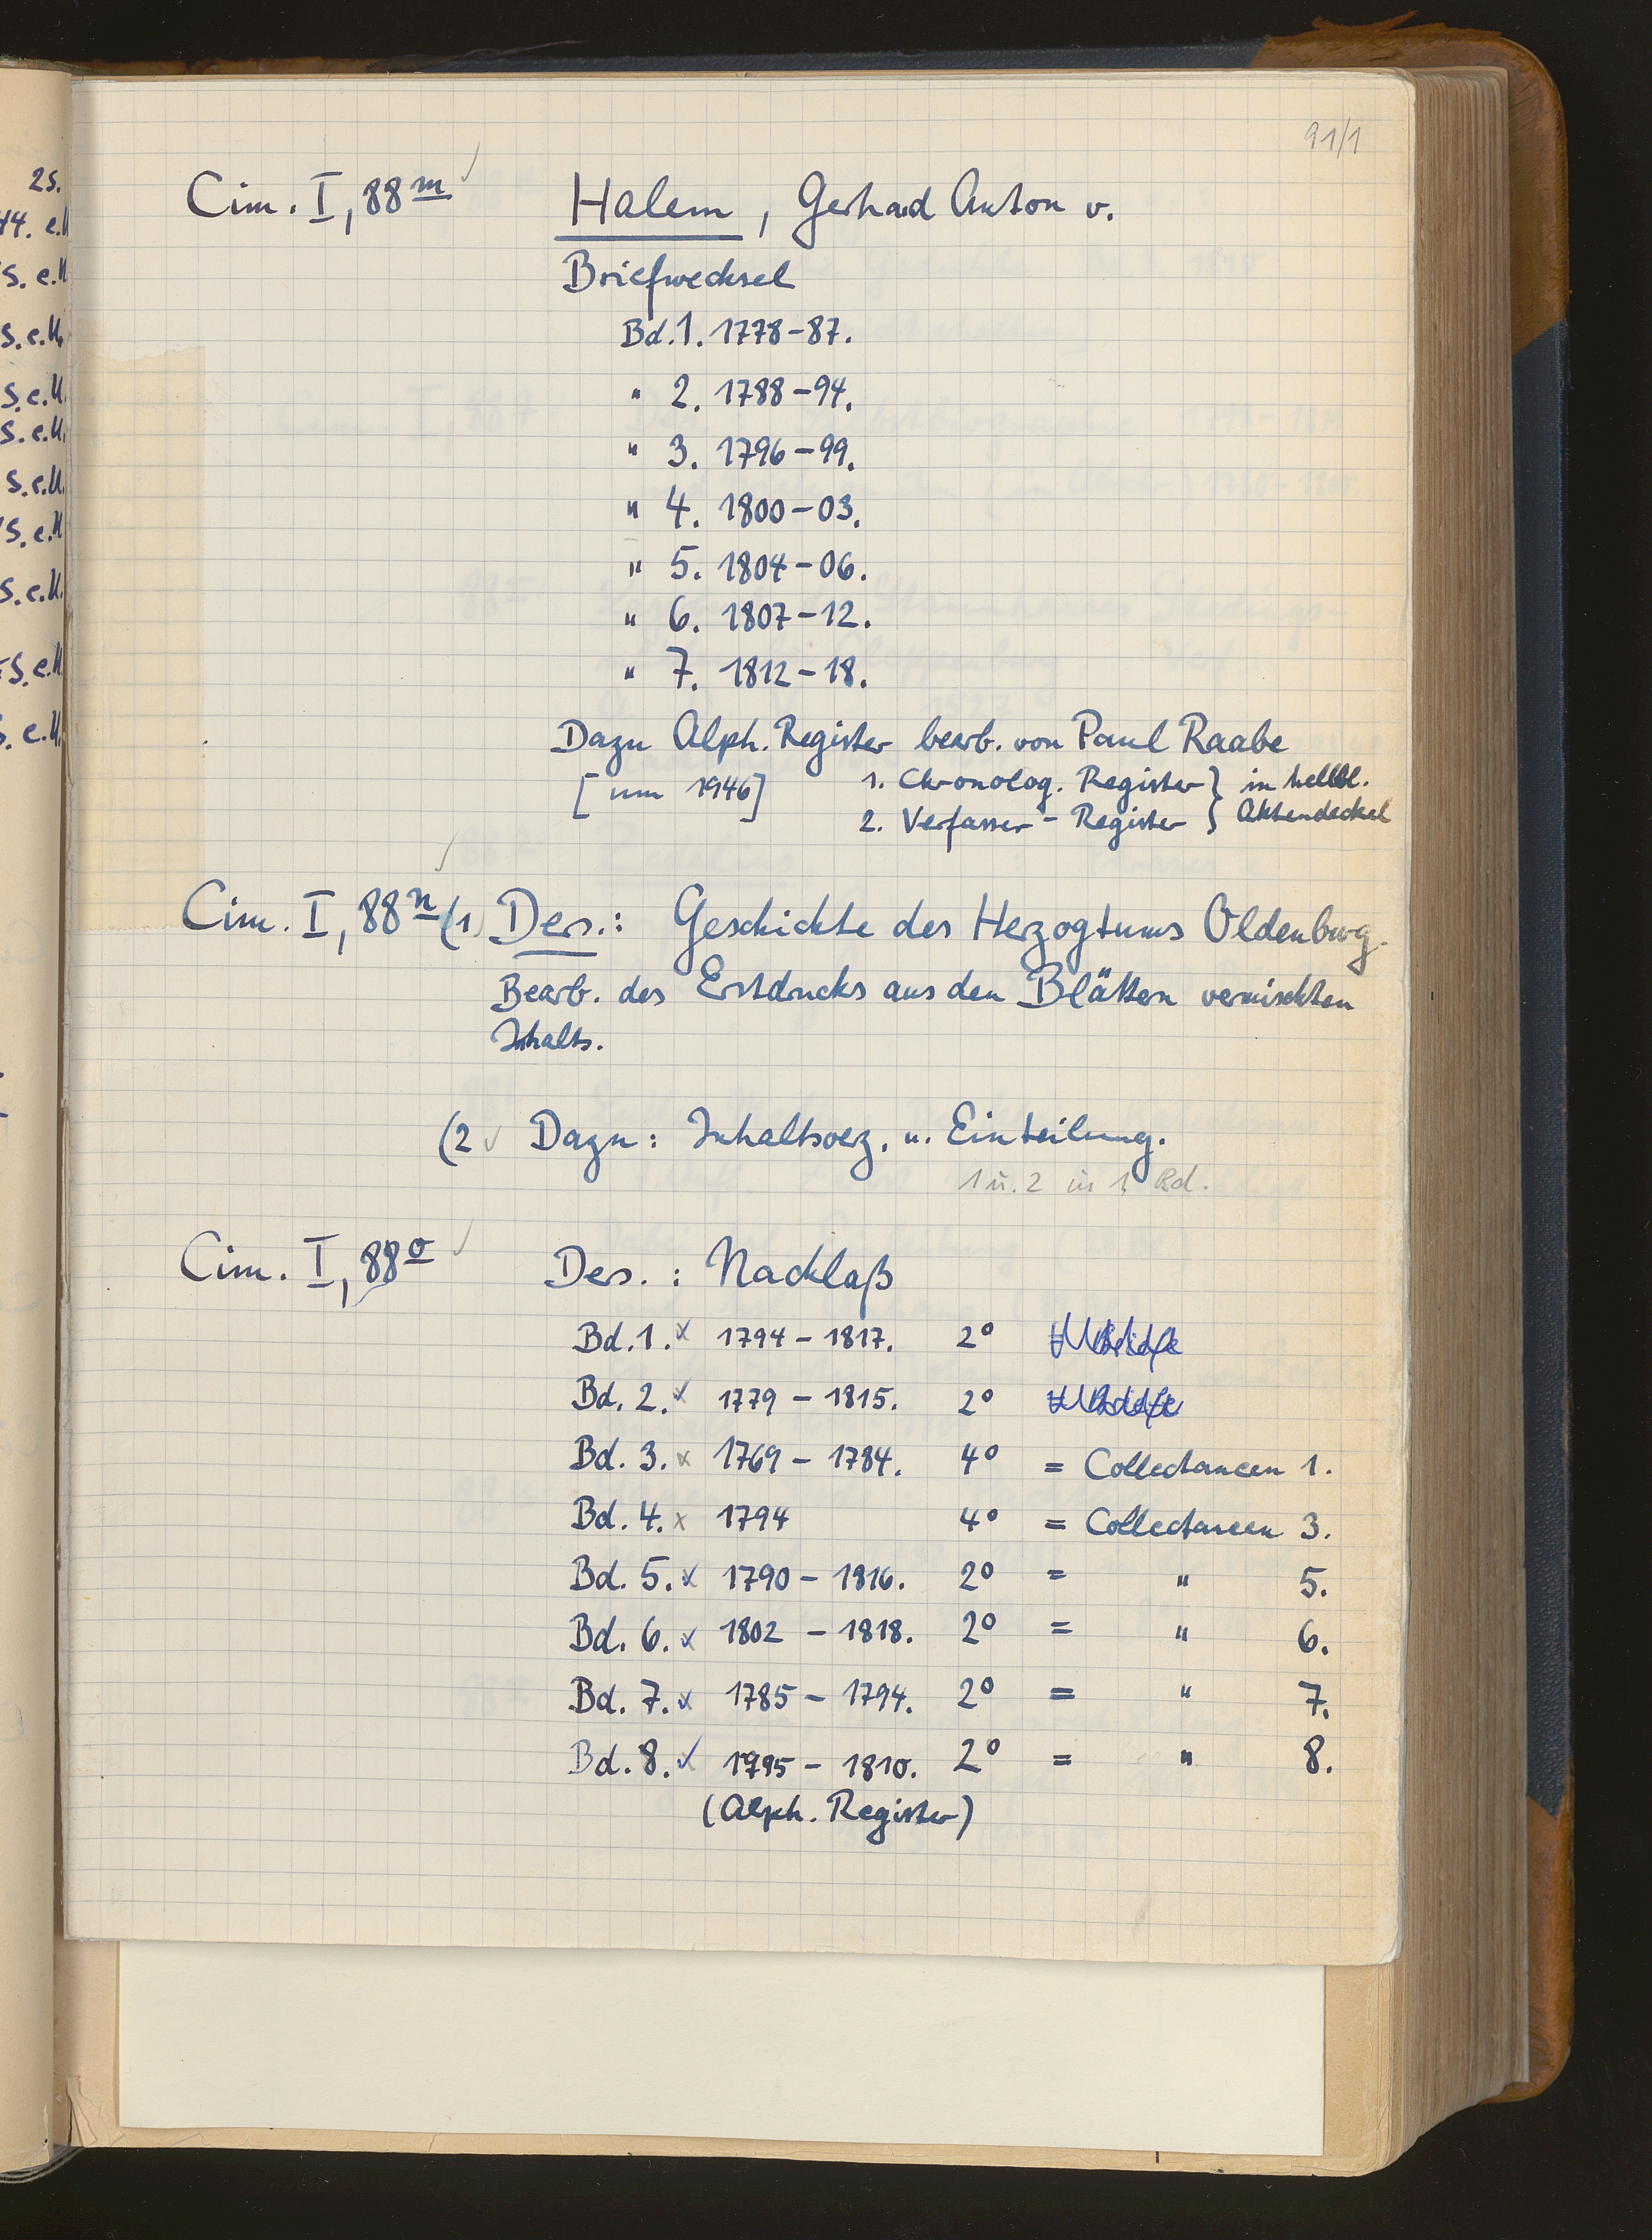 25.
44. e.U
S. e.U
S. e.U.
S. e.U.
S. e.U.
S. e.U.
S. e.U
S. e.U.
S. e.U
S. e.U.
91/1
Cim. I, 88 m Halem, Gerhard Anton v.
Briefwechsel
Bd. 1. 1778-87.
" 2. 1788-94.
" 3. 1796-99.
" 4. 1800-03.
" 5. 1804-06.
" 6. 1807-12.
" 7. 1812-18.
Dazu Alph. Register bearb. von Paul Raabe
[um 1946] 1. Chronolog. Register } in hellbl.
2. Verfasser-Register } Aktendeckel
Cim. I, 88 n (1) Ders.: Geschichte des Herzogtums Oldenburg.
Bearb. des Erstdrucks aus den Blättern vermischten
Inhalts.
(2 Dazu: Inhaltsverz. u. Einteilung.
1 u. 2 in 1 Bd.
Cim. I, 88 o Ders.: Nachlaß
Bd. 1. x 1794-1817. 2°
Bd. 2. x 1779-1815. 2°
Bd. 3. x 1769-1784. 4° = Collectaneen 1.
Bd. 4. x 1794 4° = Collectaneen 3.
Bd. 5. x 1790-1816. 2° = " 5.
Bd. 6. x 1802-1818. 2° = " 6.
Bd. 7. x 1785-1794. 2° = " 7.
Bd. 8. x 1795-1810. 2° = " 8.
(Alph. Register)